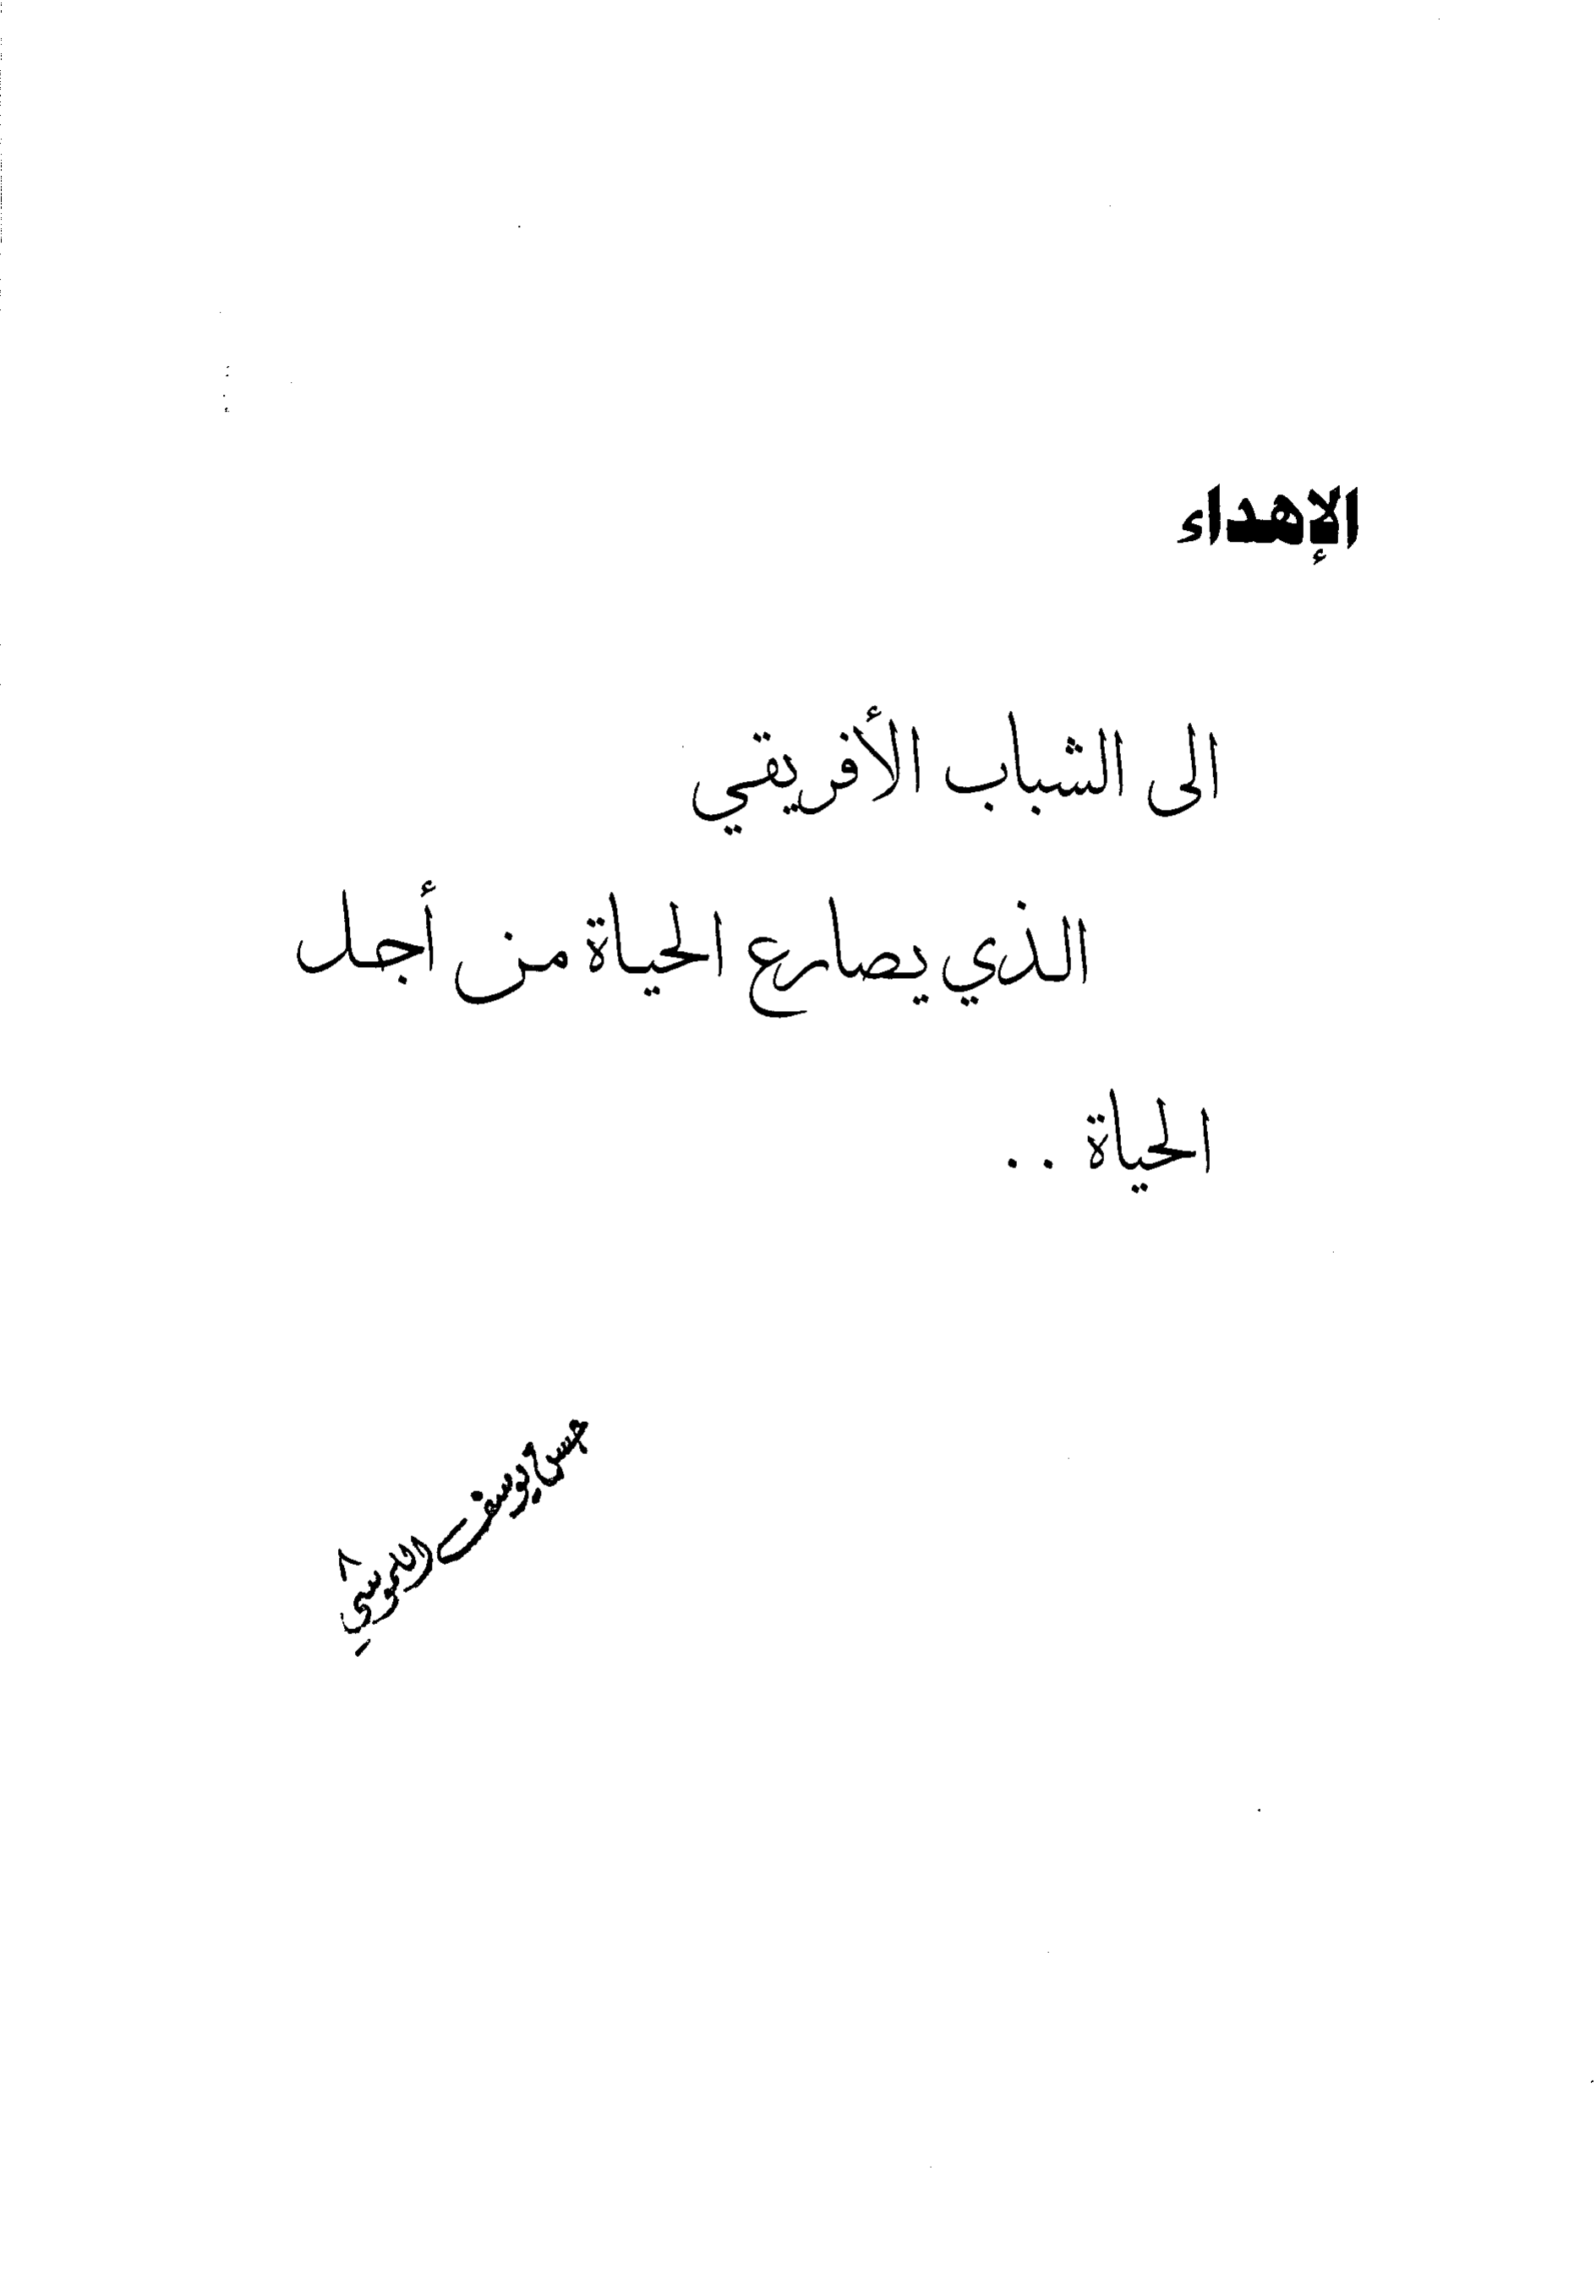 الإهداء
الى الشباب الأفريقي
الذي يصارع الحياة من أجل
الحياة ..
حسن يوسف